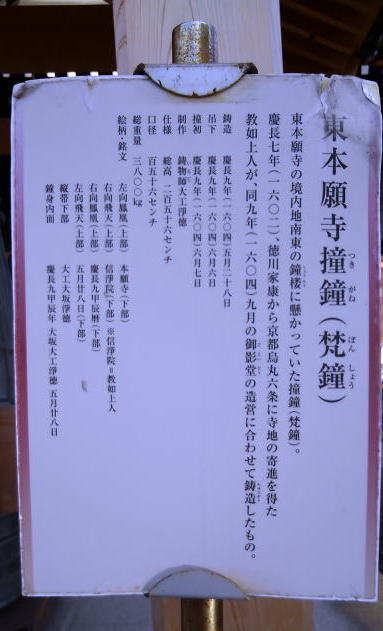 東本願寺撞鐘（梵鐘）
東本願寺の境内地南東の鐘楼に懸かっていた撞鐘（梵鐘）。
慶長七年（一六〇二）、徳川家康から京都烏丸六条に寺地の寄進を得た
教如上人が、同九年（一六〇四）九月の御影堂の造営に合わせて鋳造したもの。
鋳造 慶長九年（一六〇四）五月二十八日
吊下 慶長九年（一六〇四）六月六日
撞初 慶長九年（一六〇四）六月七日
制作 鋳物師大工淨徳
仕様 総高 二百五十六センチ
口径 百五十六センチ
総重量 三八〇〇kg
絵柄・銘文 左向鳳凰（上部） 本願寺（下部）
右向飛天（上部） 信淨院（下部） ※信淨院＝教如上人
右向鳳凰（上部） 慶長九甲辰暦（下部）
左向飛天（上部） 五月廿八日（下部）
縦帯下部 大工大坂淨徳
鐘身内面 慶長九甲辰年 大坂大工淨徳 五月廿八日